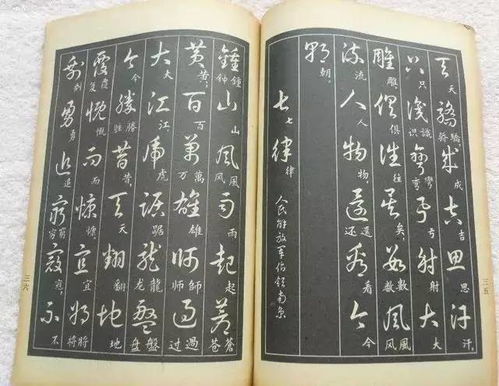 天天驕驕骄成成吉吉思思汗汗，
只只識識识彎彎弯弓弓射射大大
雕雕，俱俱往往矣矣，數數数風風风
流流人人物物，還還还看看今今
朝朝。
七七律律
人民解放军佔领南京
三五
鍾鍾钟山山風風风雨雨起起蒼蒼苍
黃黃，百百萬萬万雄雄師師师過過过
大大江江，虎虎踞踞龍龍龙盤盤盘
今今勝勝胜昔昔，天天翻翻地地
覆覆复慨慨而而慷慷，宜宜將將将
剩剩勇勇追追窮窮穷寇寇，不不
三六